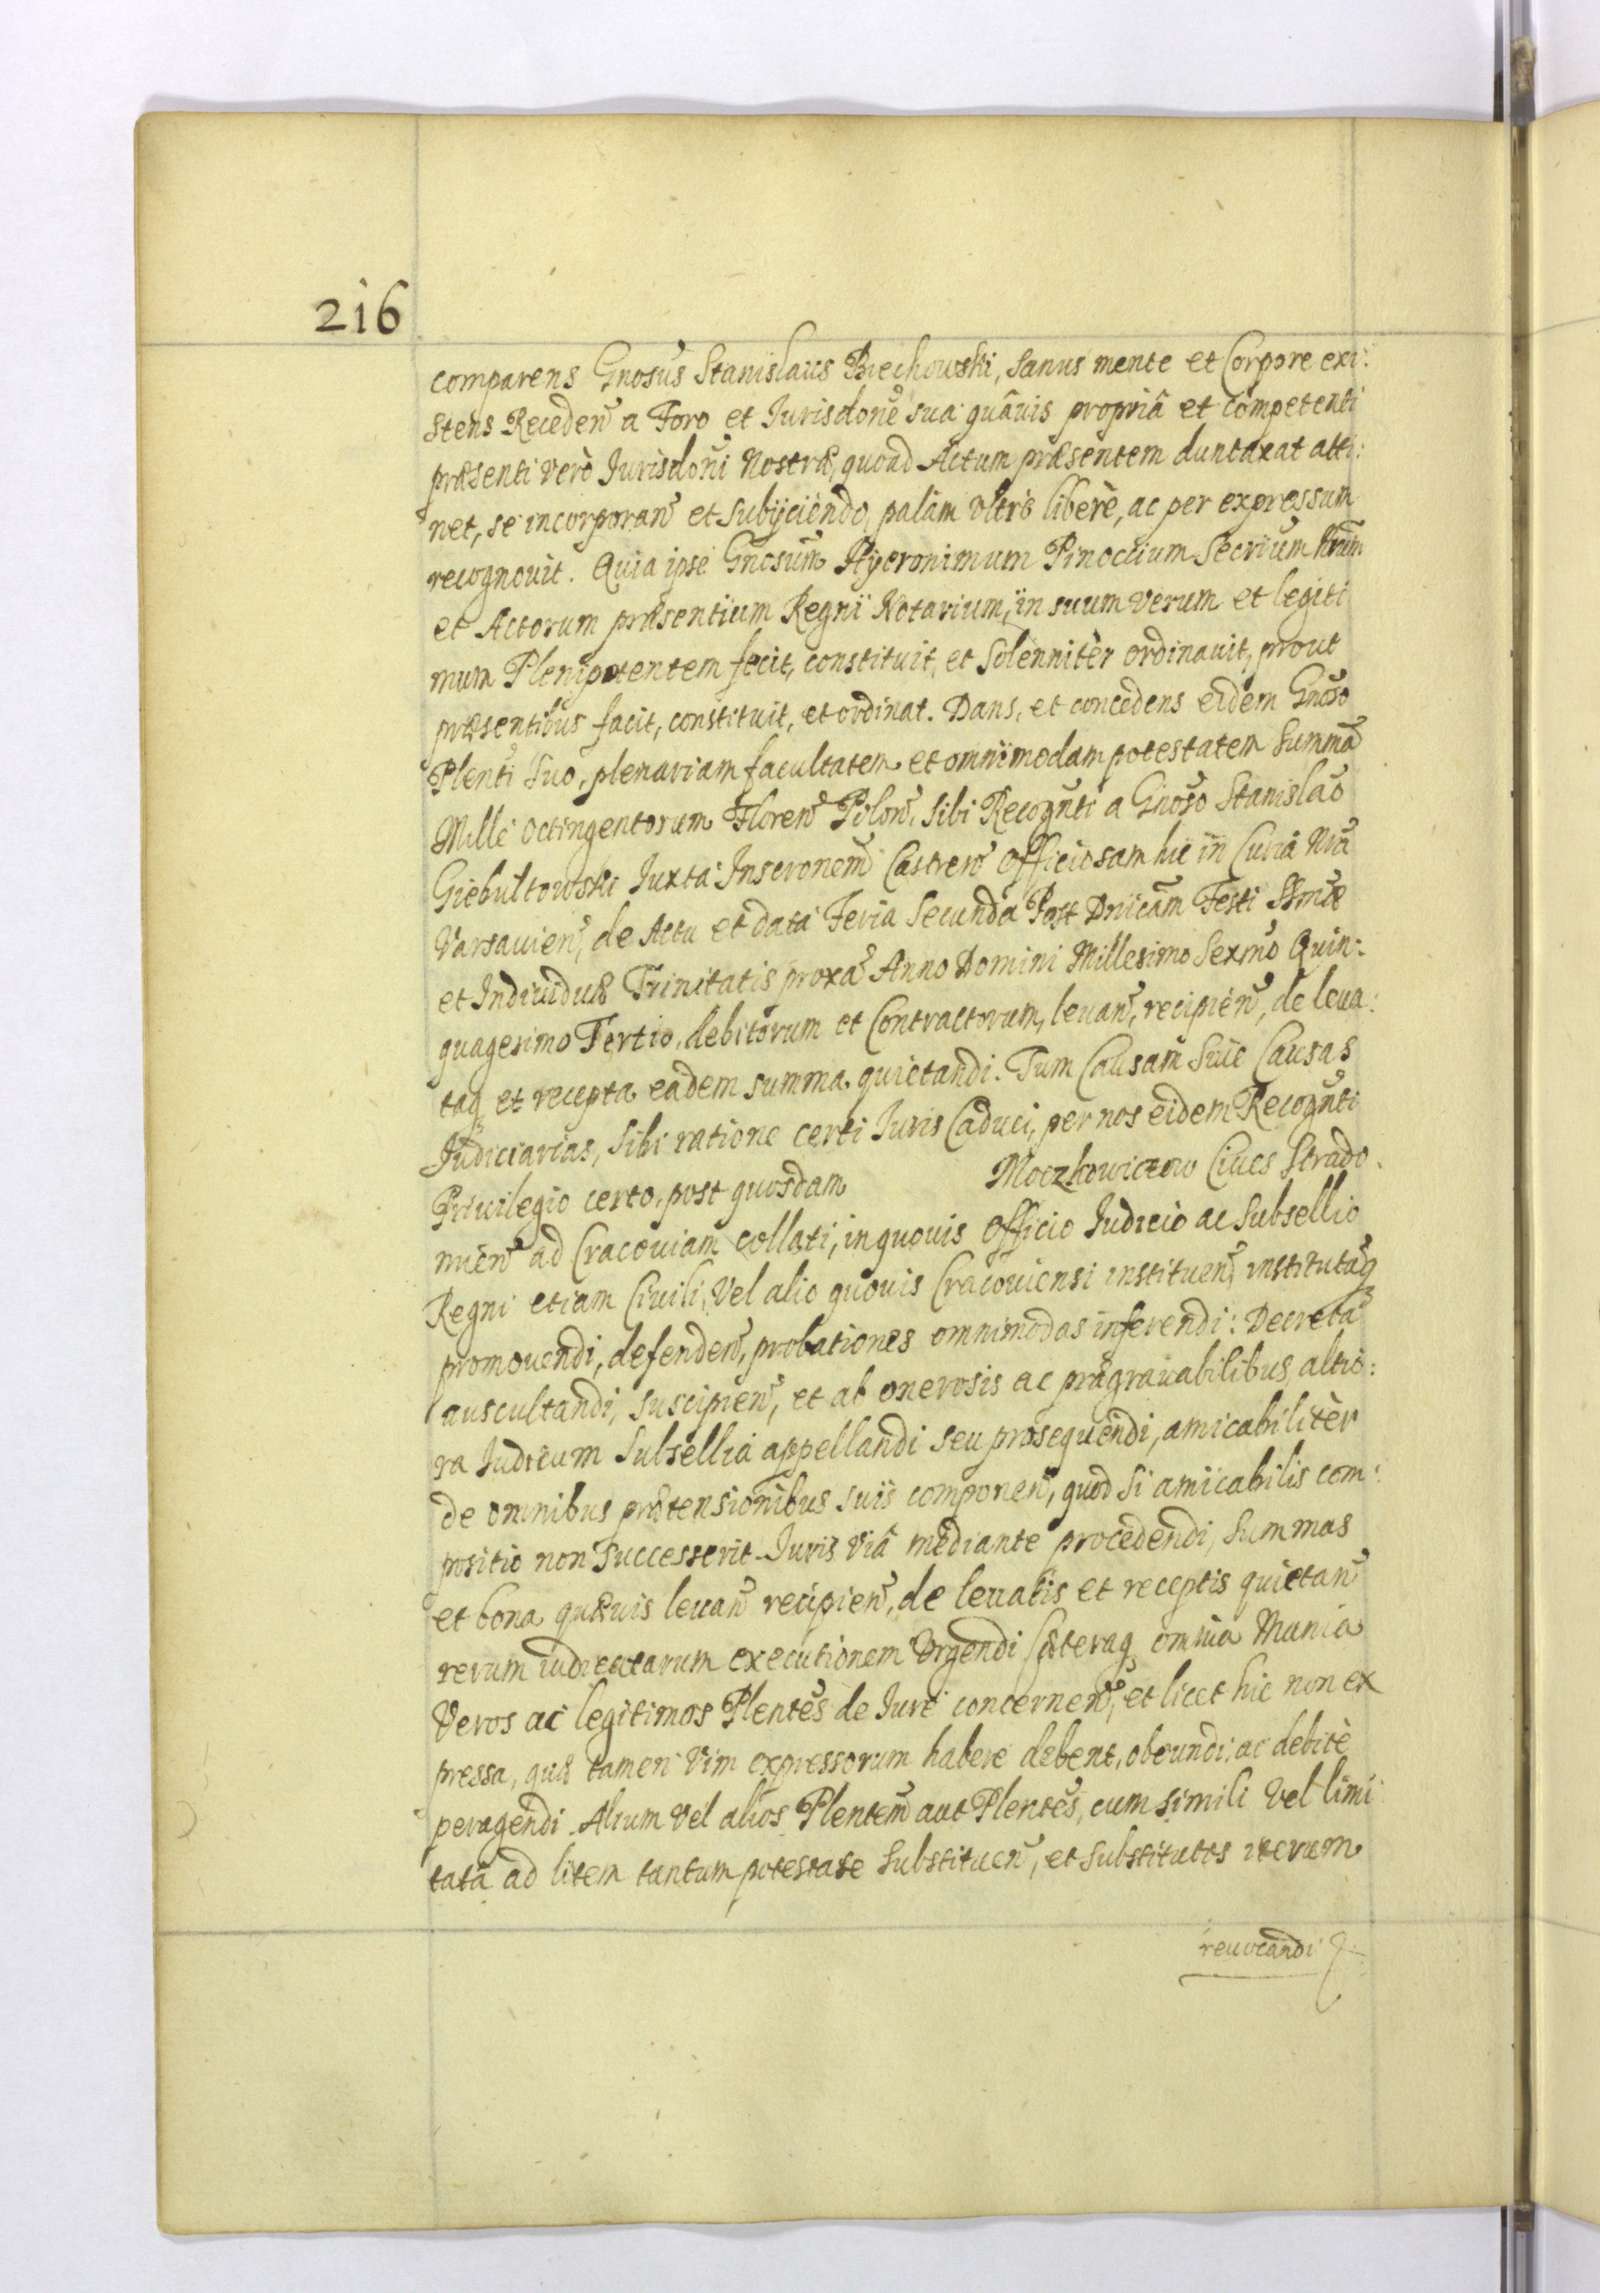 216
comparens Gnosus Stanislaus Biechowski, sanus mente et Corpore exi:
stens Receden a Foro et Jurisdone sua quâuis propriâ et competenti
præsenti verò Jurisdoni Nostræ, quoad Actum præsentem duntaxat atti:
net, se incorporan et subijciendo, palàm vltrò liberè, ac per expressum
recognouit. Quia ipse Gnosum Hyeronimum Pinoccium Secrium Nrum
et Actorum præsentium Regni Notarium, in suum verum et legiti
mum Plenipotentem fecit, constituit, et solennitèr ordinauit, prout
præsentibus facit, constituit, et ordinat. Dans, et concedens eidem Gnoso
Plenti suo, plenariam facultatem et omnimodam potestatem Summã
Mille octingentorum Floren Polon, sibi Recognti a Gnoso Stanislao
Giebultowski Juxta Inscronem Castren officiosam hic in Curia Nra
Varsauien, de Actu et data Feria Secunda Post Dnicam Festi Ssmæ
et Indiuiduæ Trinitatis proxa Anno Domini Millesimo Sexmo Quin:
quagesimo Tertio, debitorum et Contractorum, leuan, recipien, de leua:
taq et recepta eadem summa quietandi. Tum Causam siue Causas
Judiciarias, sibi ratione certi Juris Caduci, per nos eidem Recognti
Priuilegio certo, post quosdam Moczkowiczow Ciues Strado.
mien ad Cracouiam collati, in quouis officio Judicio ac Subsellio
Regni etiam Ciuili, vel alio quouis Cracouiensi instituen, institutasq
promouendi, defenden, probationes omnimodas inferendi: Decreta
auscultandi, suscipien, et ab onerosis ac prægrauabilibus, altio:
ra Judicum Subsellia appellandi seu prosequendi, amicabilitèr
de omnibus prætensionibus suis componen, quod si amicabilis com:
positio non successerit Juris viâ mediante procedendi, Summas
et bona quæuis leuan recipien, de leuatis et receptis quietan
rerum iudicatarum executionem vrgendi Cæteraq omnia Munia
Veros ac legitimos Plentes de Jure concernen, et licet hic non ex
pressa, quæ tamen vim expressorum habere debent, obeundi, ac debitè
peragendi. Alium vel alios Plentem aut Plentes, cum simili vel limi
tatâ ad litem tantum potestate substituen, et substitutos iterum
reuocandi